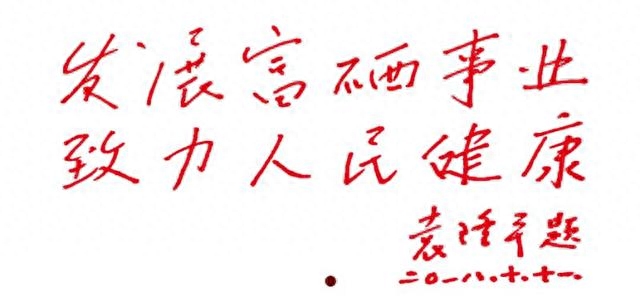 发展富硒事业
致力人民健康
袁隆平题
二〇一八.十.十一.